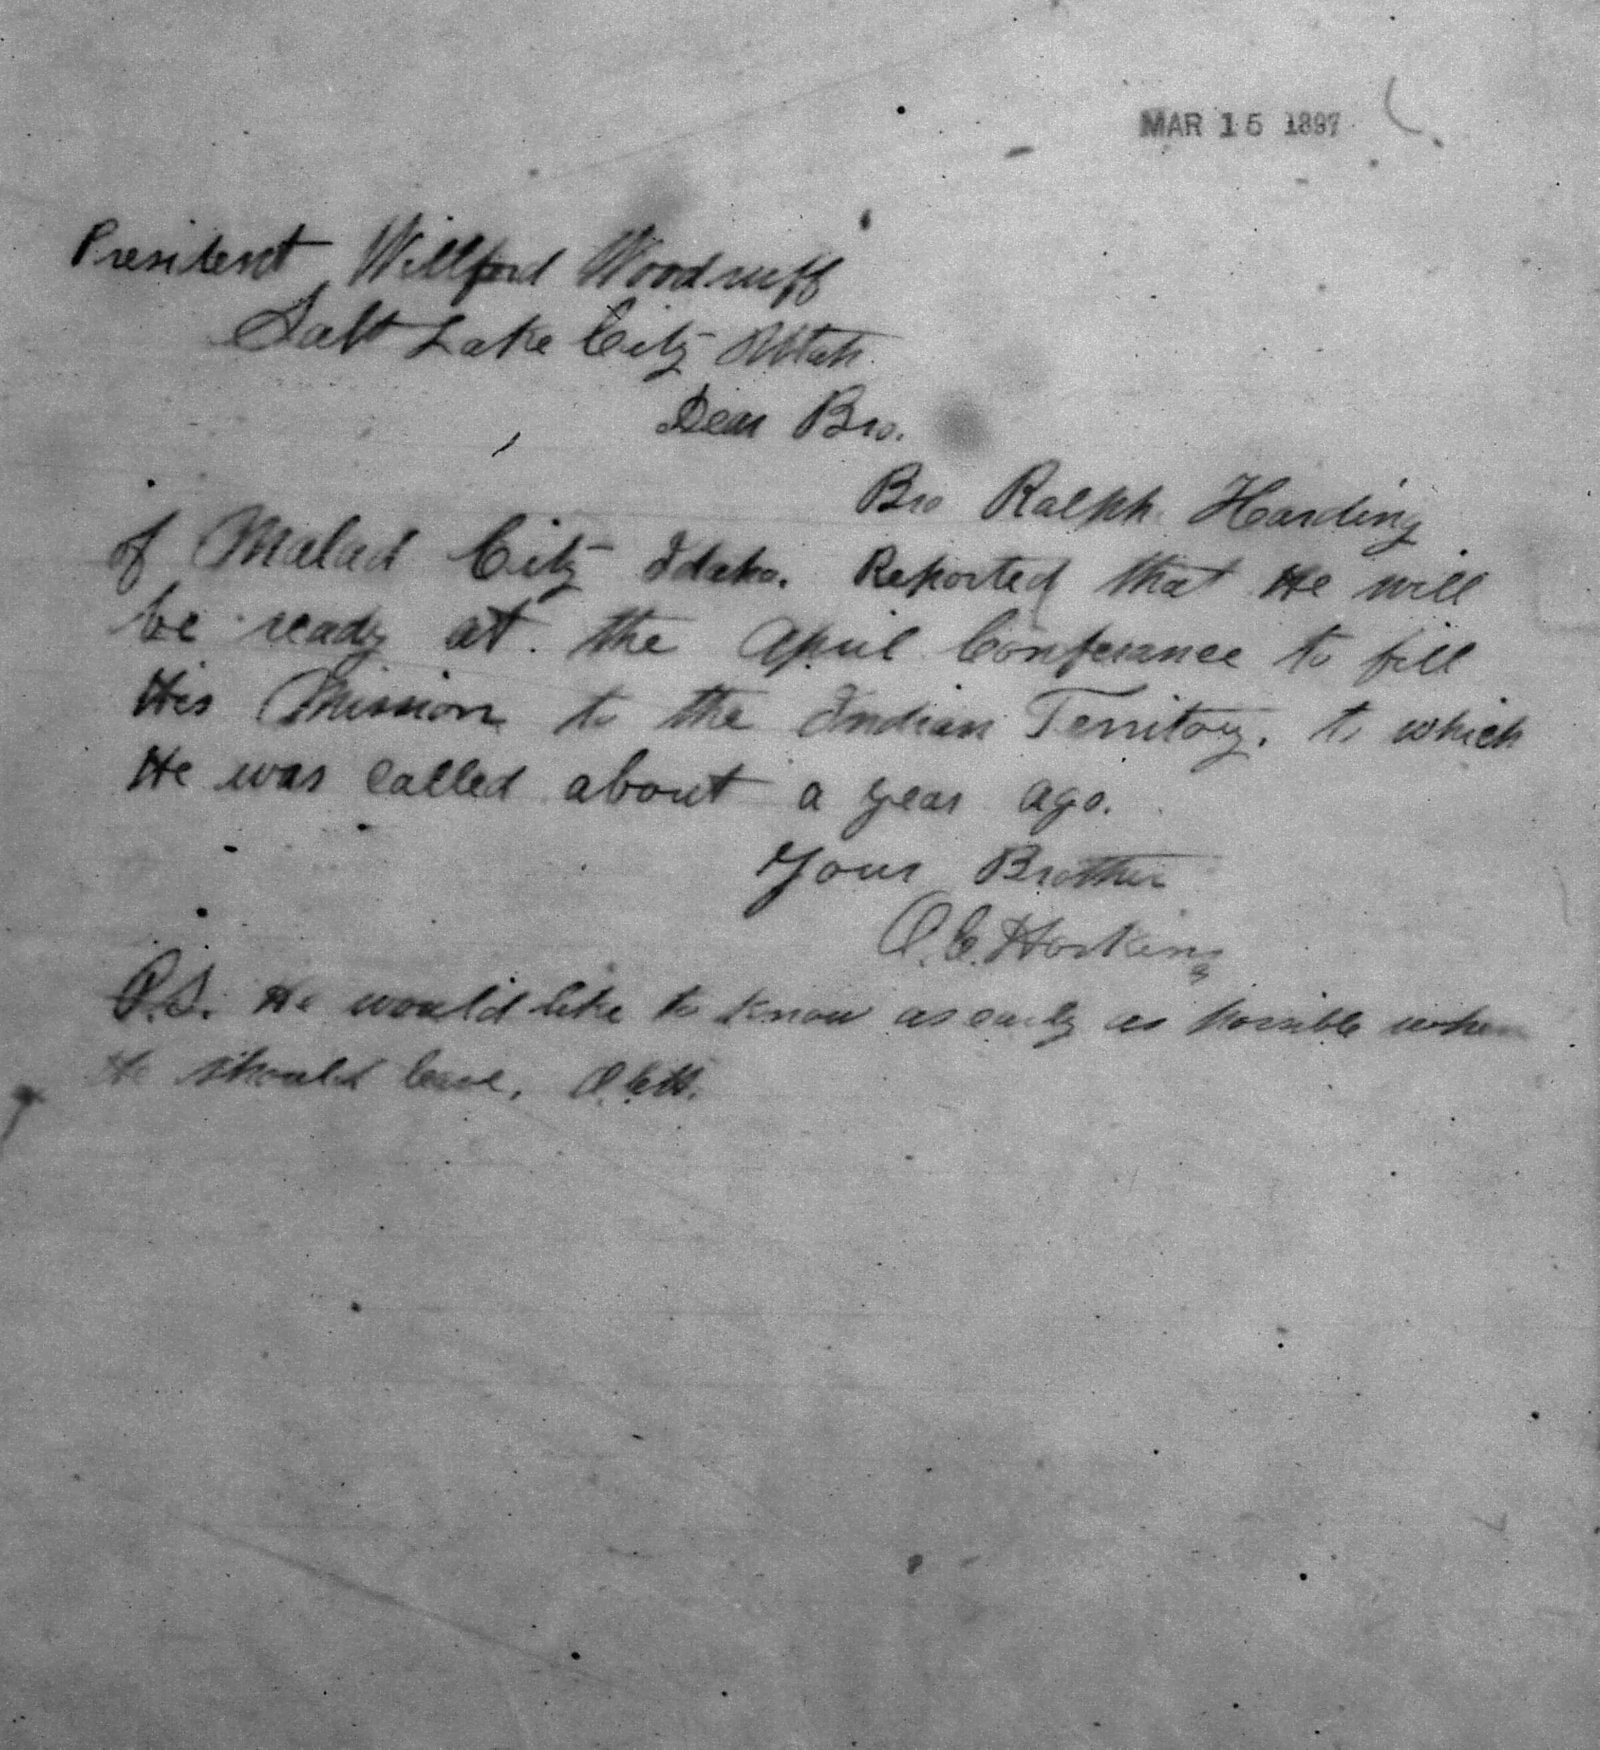 MAR 15 1897
President Willford Woodruff
Salt Lake City Utah.
Dear Bro.
Bro Ralph Harding
of Malad City Idaho. Reported that He will
be ready at the April Conference to fill
His Mission to the Indian Territory. to which
He was called about a year ago.
Your Brother
O. C. Hoskins
P.S. He would like to know as early as possible when
He should leave. O.C.H.